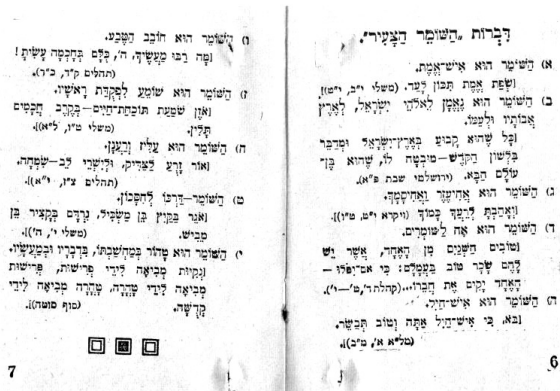 דִּבְרוֹת „הַשּׁוֹמֵר הַצָּעִיר".
א) הַשּׁוֹמֵר הוּא אִישׁ־אֱמֶת.
[שְׂפַת אֱמֶת תִּכּוֹן לָעַד. (משלי י"ב, י"ט)].
ב) הַשּׁוֹמֵר הוּא נֶאֱמָן לֵאלֹהֵי יִשְׂרָאֵל, לְאֶרֶץ
אֲבוֹתָיו וּלְעַמּוֹ.
[כָּל שֶׁהוּא קָבוּעַ בְּאֶרֶץ־יִשְׂרָאֵל וּמְדַבֵּר
בִּלְשׁוֹן הַקֹּדֶשׁ—מוּבְטָח לוֹ, שֶׁהוּא בֶּן־
עוֹלָם הַבָּא. (ירושלמי שבת פ"א).
ג) הַשּׁוֹמֵר הוּא אָחִיעֵזֶר וַאֲחִיסָמָךְ.
[וְאָהַבְתָּ לְרֵעֲךָ כָּמוֹךָ (ויקרא י"ט,)].
ד) הַשּׁוֹמֵר הוּא אָח לַשּׁוֹמְרִים.
[טוֹבִים הַשְּׁנַיִם מִן הָאֶחָד, אֲשֶׁר יֵשׁ
לָהֶם שָׂכָר טוֹב בַּעֲמָלָם: כִּי אִם־יִפֹּלוּ —
הָאֶחָד יָקִים אֶת חֲבֵרוֹ...(קהלת ד', ט'—י').
ה) הַשּׁוֹמֵר הוּא אִישׁ־חַיִל.
[בֹּא, כִּי אִישׁ־חַיִל אַתָּה וְטוֹב תְּבַשֵּׂר.
(מל"א א', מ"ב)].
6
ו) הַשּׁוֹמֵר הוּא חוֹבֵב הַטֶּבַע.
[מָה רַבּוּ מַעֲשֶׂיךָ, ה', כֻּלָּם בְּחָכְמָה עָשִׂיתָ!
(תהלים ק"ד, כ"ד).
ז) הַשּׁוֹמֵר הוּא שׁוֹמֵעַ לִפְקֻדַּת רָאשָׁיו.
[אֹזֶן שֹׁמַעַת תּוֹכַחַת־חַיִּים—בְּקֶרֶב חֲכָמִים
תָּלִין. (משלי ט"ו, ל"א)].
ח) הַשּׁוֹמֵר הוּא עַלִּיז וְרַעֲנָן.
[אוֹר זָרֻעַ לַצַּדִּיק, וּלְיִשְׁרֵי לֵב—שִׂמְחָה.
(תהלים צ"ז, י"א)].
ט) הַשּׁוֹמֵר—דַּרְכּוֹ לְחִסָּכוֹן.
[אֹגֵר בַּקַּיִץ בֵּן מַשְׂכִּיל, נִרְדָּם בַּקָּצִיר בֵּן
מֵבִישׁ. (משלי י', ה')].
י) הַשּׁוֹמֵר הוּא טָהוֹר בְּמַחֲשַׁבְתּוֹ, בִּדְבָרָיו וּבְמַעֲשָׂיו.
[נְקִיּוּת מְבִיאָה לִידֵי פְּרִישׁוּת, פְּרִישׁוּת
מְבִיאָה לִידֵי טָהֳרָה, טָהֳרָה מְבִיאָה לִידֵי
קְדֻשָּׁה. (סוף סוטה)].
7